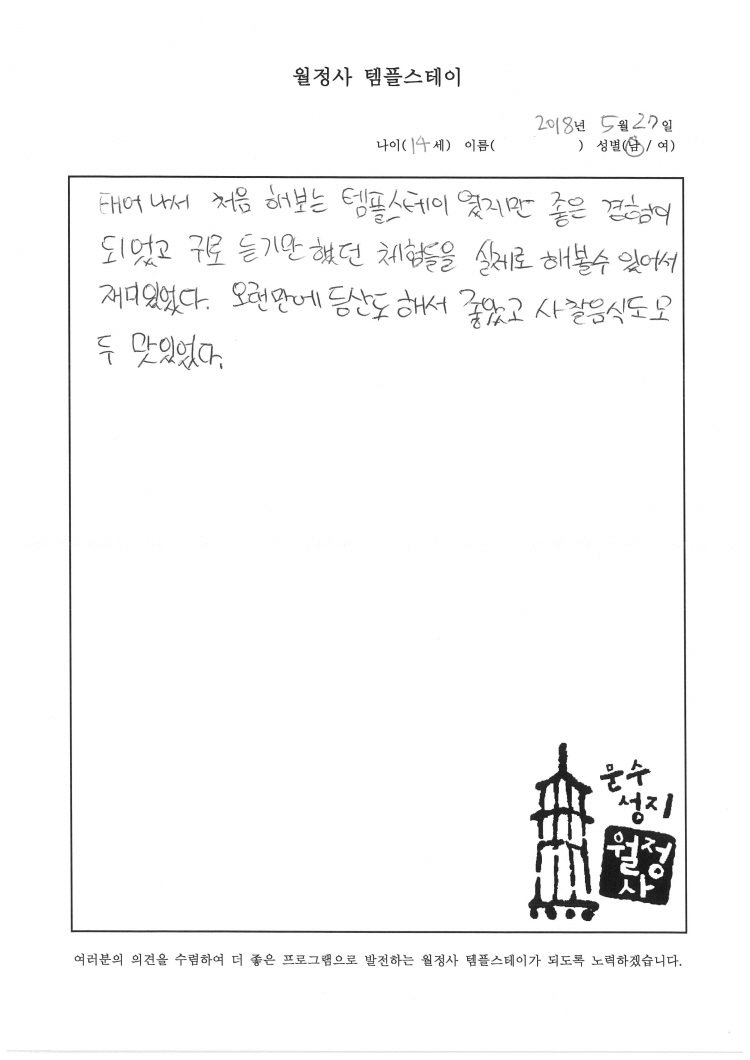 월정사 템플스테이
2018년 5월 27일
나이(14세) 이름( ) 성별(남/여)
태어나서 처음 해보는 템플스테이 였지만 좋은 경험이
되었고 귀로 듣기만 했던 체험들을 실제로 해볼수 있어서
재미있었다. 오랜만에 등산도 해서 좋았고 사찰음식도 모
두 맛있었다.
문수
성지
월정
사
여러분의 의견을 수렴하여 더 좋은 프로그램으로 발전하는 월정사 템플스테이가 되도록 노력하겠습니다.